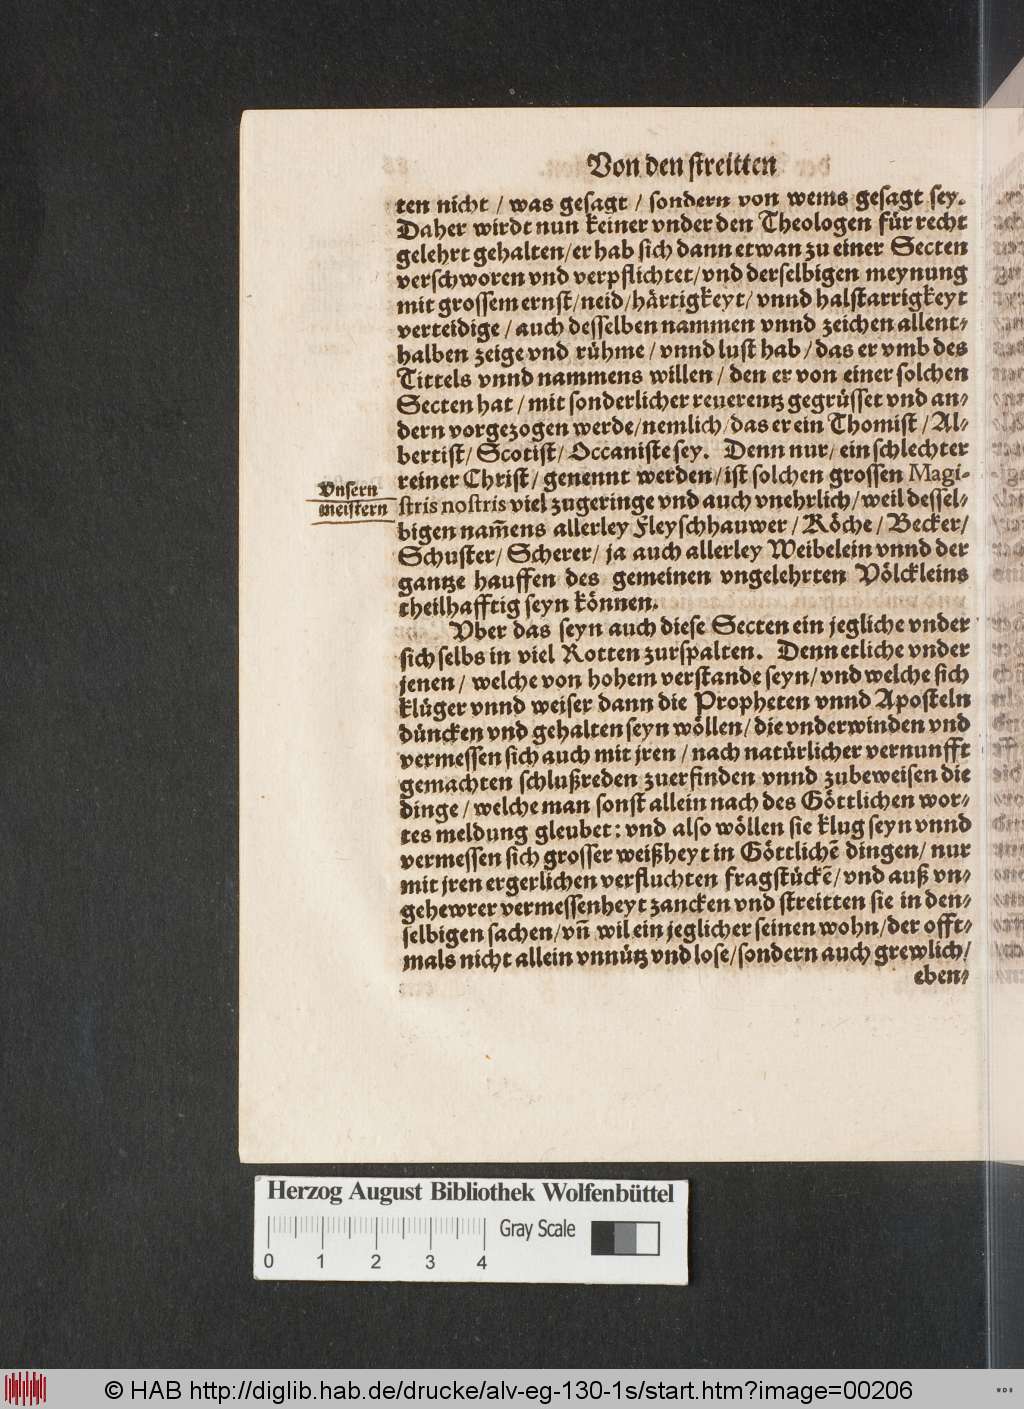 Von den streitten
ten nicht / was gesagt / sondern von wems gesagt sey.
Daher wirdt nun keiner vnder den Theologen für recht
gelehrt gehalten/er hab sich dann etwan zu einer Secten
verschworen vnd verpflichtet/vnd derselbigen meynung
mit grossem ernst/neid/hårtigkeyt/ vnnd halstarrigkeyt
verteidige / auch desselben nammen vnnd zeichen allent⸗
halben zeige vnd rühme / vnnd lust hab / das er vmb des
Tittels vnnd nammens willen / den er von einer solchen
Secten hat / mit sonderlicher reuerentz gegrüsset vnd an⸗
dern vorgezogen werde/nemlich/das er ein Thomist / Al⸗
bertist/ Scotist/ Occaniste sey. Denn nur/ ein schlechter
reiner Christ/ genennt werden/ist solchen grossen Magi-
stris nostris viel zugeringe vnd auch vnehrlich/weil dessel⸗
bigen nam̄ens allerley Fleyschhauwer / Köche / Becker/
Schuster/ Scherer/ ja auch allerley Weibelein vnnd der
gantze hauffen des gemeinen vngelehrten Völckleins
theilhafftig seyn können.
Vnsern
meistern
Vber das seyn auch diese Secten ein jegliche vnder
sich selbs in viel Rotten zurspalten. Denn etliche vnder
jenen / welche von hohem verstande seyn/vnd welche sich
klüger vnnd weiser dann die Propheten vnnd Aposteln
düncken vnd gehalten seyn wöllen/die vnderwinden vnd
vermessen sich auch mit jren / nach natürlicher vernunfft
gemachten schlußreden zuerfinden vnnd zubeweisen die
dinge / welche man sonst allein nach des Göttlichen wor⸗
tes meldung gleubet: vnd also wöllen sie klug seyn vnnd
vermessen sich grosser weißheyt in Göttlichē dingen/ nur
mit jren ergerlichen verfluchten fragstückē/vnd auß vn⸗
gehewrer vermessenheyt zancken vnd streitten sie in den⸗
selbigen sachen/vn̄ wil ein jeglicher seinen wohn/der offt⸗
mals nicht allein vnnütz vnd lose/sondern auch grewlich/
eben⸗
Herzog August Bibliothek Wolfenbüttel
Gray Scale
0 1 2 3 4
© HAB http://diglib.hab.de/drucke/alv-eg-130-1s/start.htm?image=00206